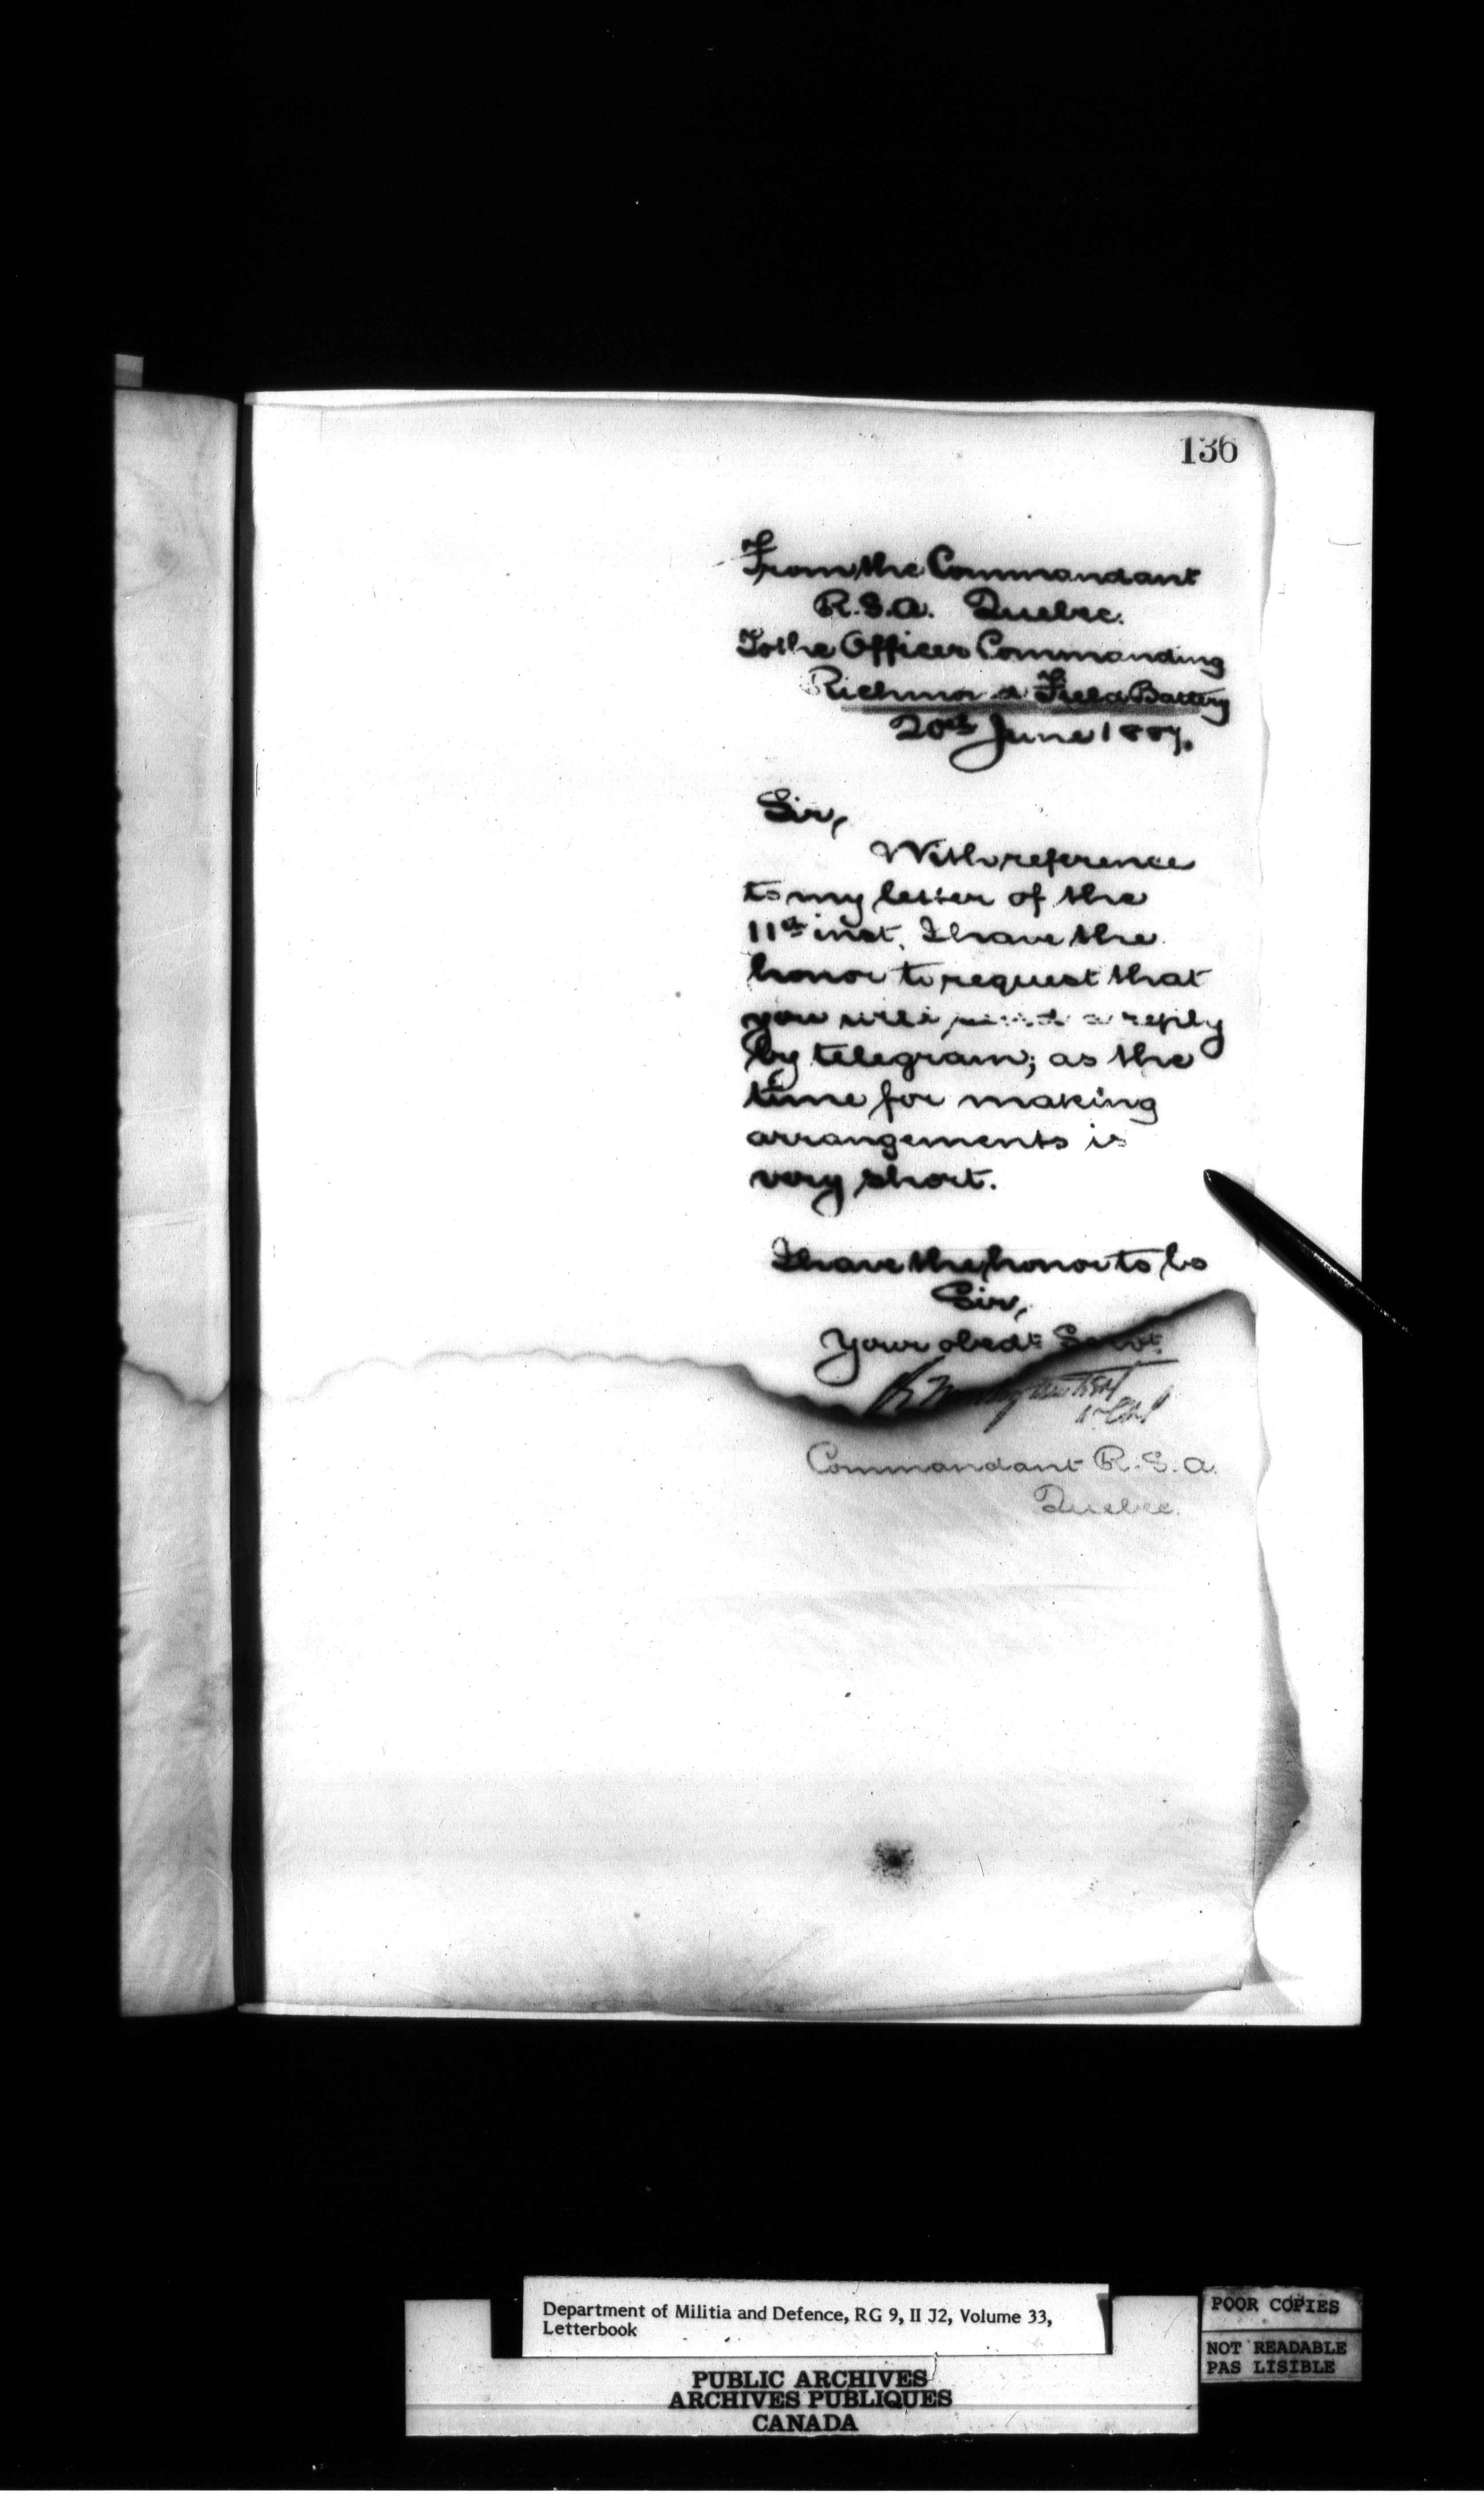 136
From the Commandant
R.S.A. Quebec.
To the Officer Commanding
Richmond Field Battery
20th June 1887.
Sir,
With reference
to my letter of the
11th inst, I have the
honor to request that
you will send a reply
by telegram; as the
time for making
arrangements is
very short.
I have the honor to be
Sir,
Your obedt Servt
Lt Col
Commandant R.S.A.
Quebec.
Department of Militia and Defence, RG 9, II J2, Volume 33,
Letterbook
PUBLIC ARCHIVES
ARCHIVES PUBLIQUES
CANADA
POOR COPIES
NOT READABLE
PAS LISIBLE